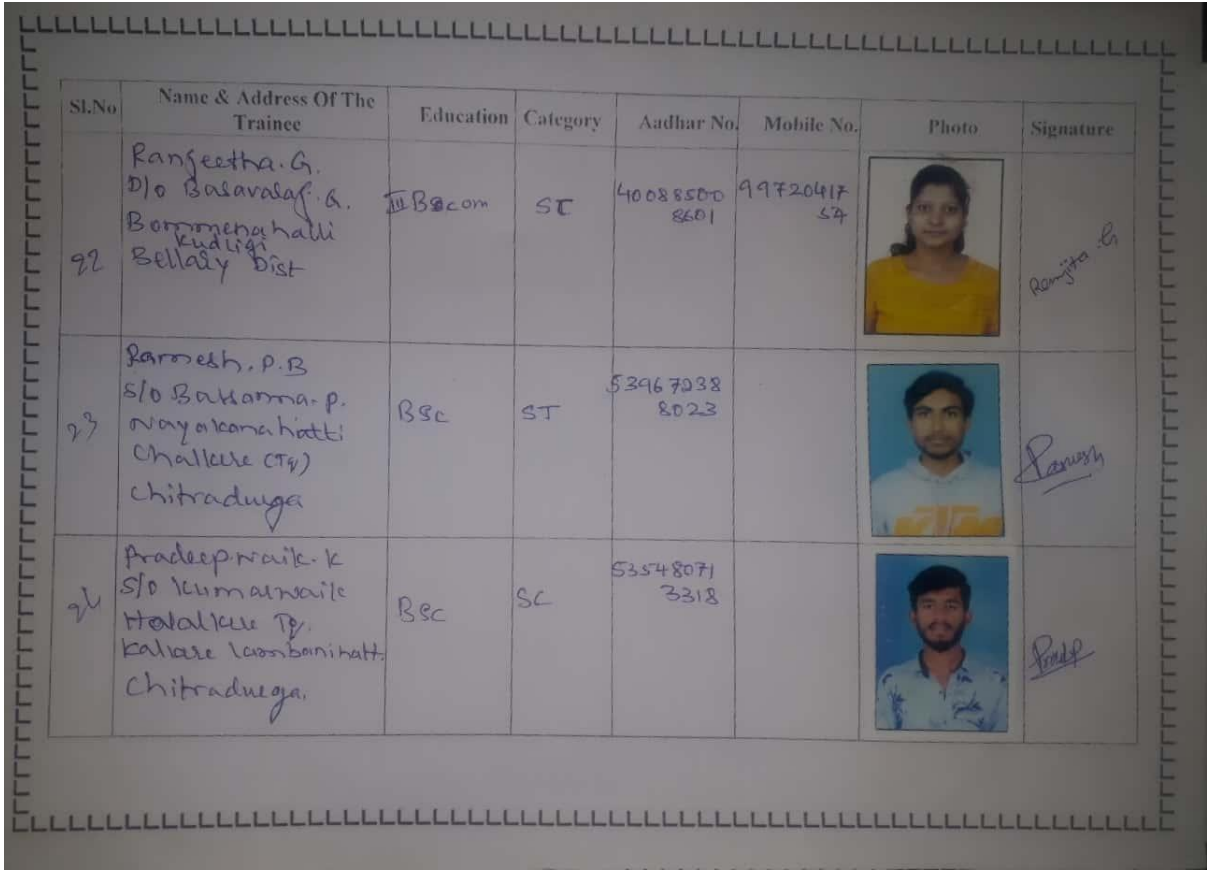 Sl.No
Name & Address Of The
Trainee
Education
Category
Aadhar No.
Mobile No.
Photo
Signature
22
Ranjeetha. G.
D/o Basavaraj. G.
Bommenahalli
Kudligi
Bellary Dist
III Bscom
ST
40088500
8601
99720417
54
Ranjita .G
23
Ramesh. P.B
S/o
P.
Nayakanahatti
Challkere (Tq)
Chitradurga
BSc
ST
53967238
8023
Ramesh
24
Pradeepnaik. K
S/o Kumarnaik
Holalkere Tq.
Lambanihatti
Chitradurga.
BSc
SC
53548071
3318
Pradp